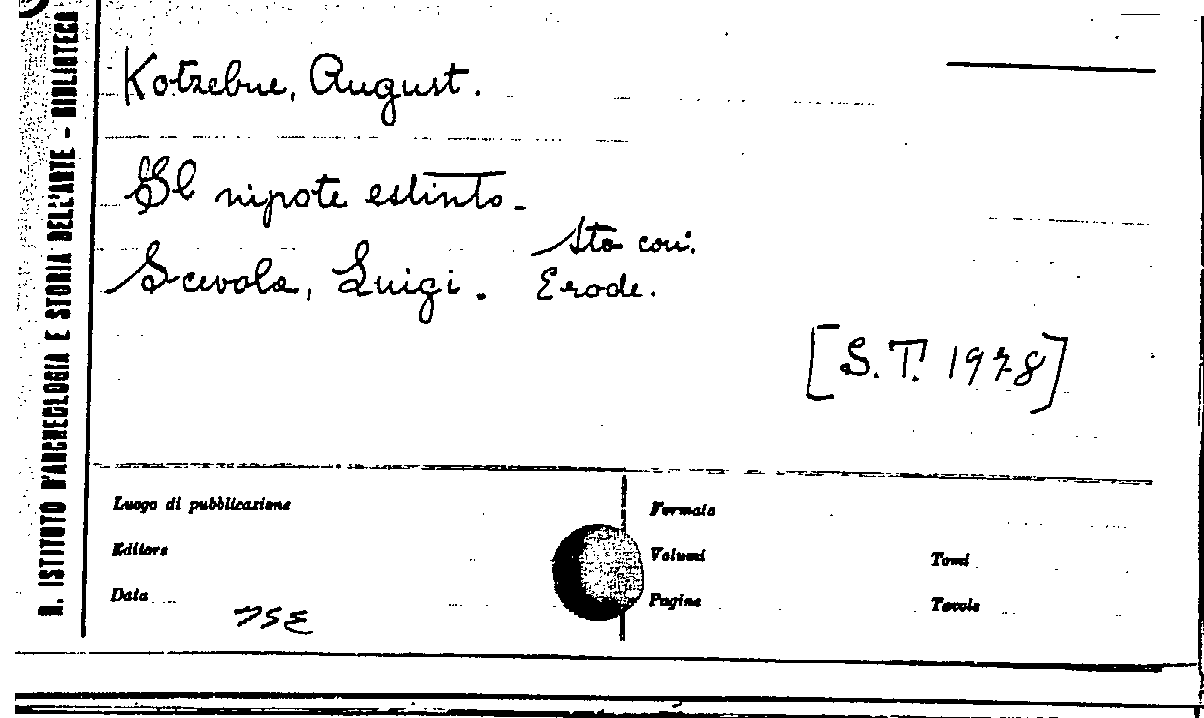 R. ISTITUTO D'ARCHEOLOGIA E STORIA DELL'ARTE - BIBLIOTECA
Kotzebue, August.
Il nipote estinto.
Sta con:
Scevola, Luigi. Erode.
[S.T. 1978]
Luogo di pubblicazione
Formato
Editore
Volumi
Tomi
Data
Pagine
Tavole